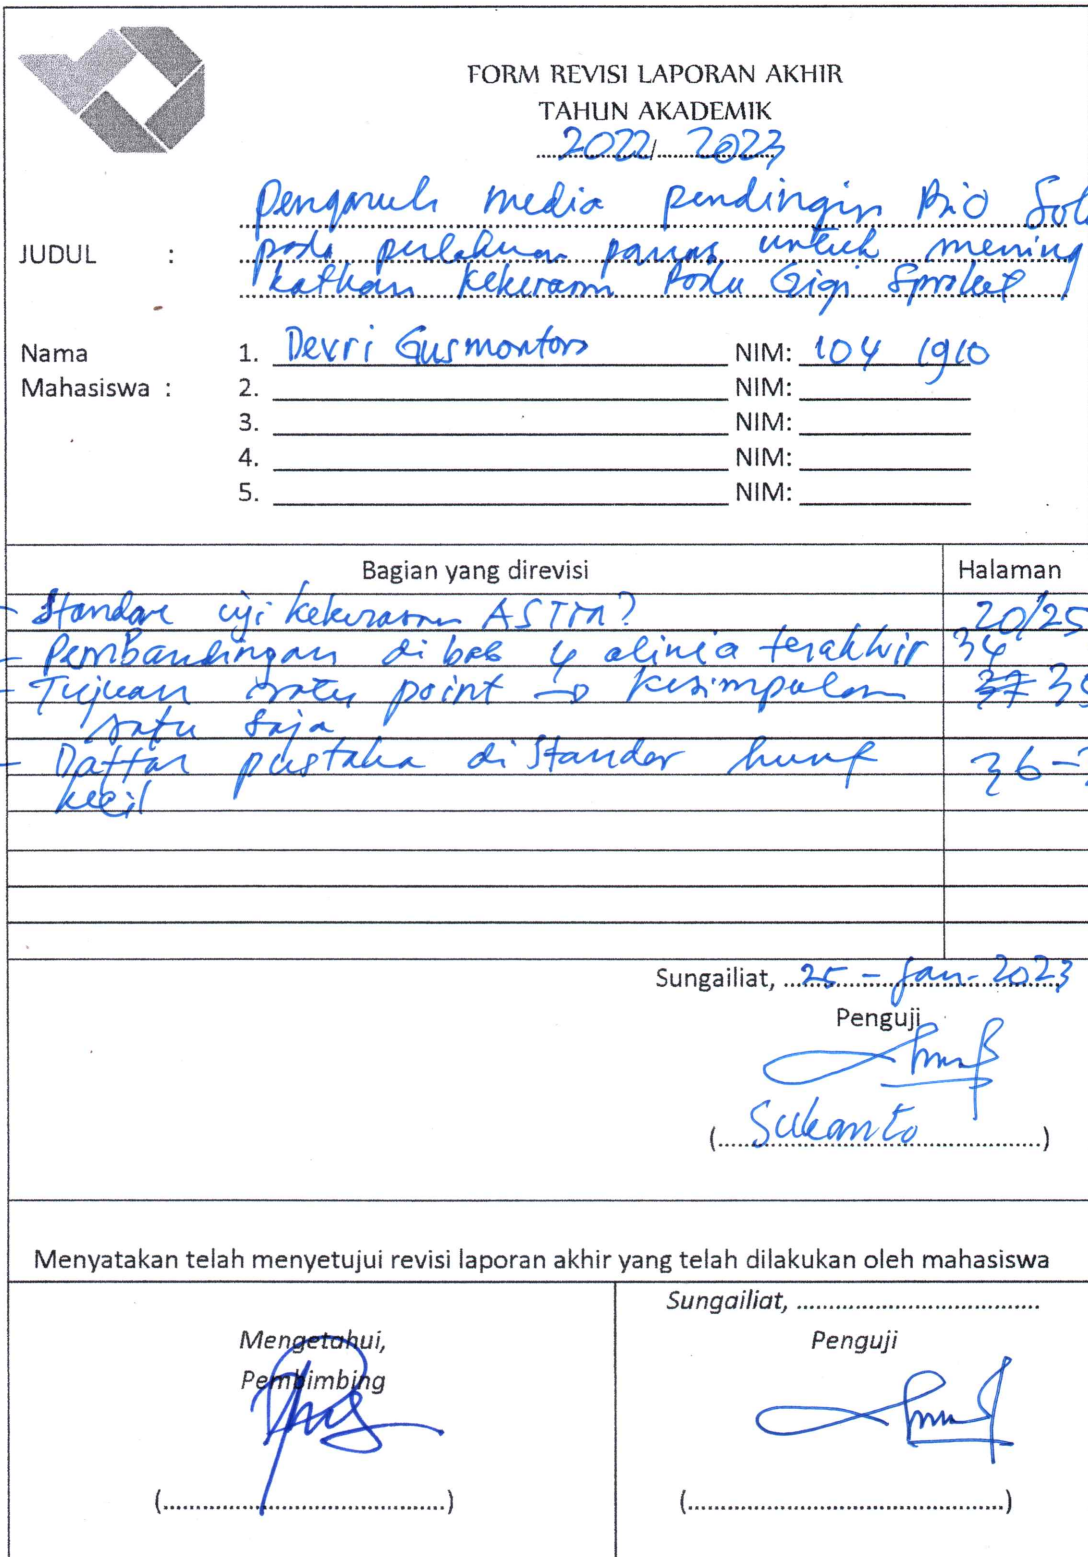 FORM REVISI LAPORAN AKHIR
TAHUN AKADEMIK
2022/2023
Pengaruh media pendingin Bio Sol
JUDUL : pada perlakuan panas untuk mening
katkan kekerasan Pada Gigi Sproket
Nama 1. Devri Gusmontoro NIM: 104 1910
Mahasiswa : 2. NIM:
3. NIM:
4. NIM:
5. NIM:
Bagian yang direvisi Halaman
- Standar uji kekerasan ASTM? 20/25
- Pembandingan di bab 4 alinia terakhir 34
- Tujuan satu point → kesimpulan 37 35
satu saja
- Daftar pustaka di Standar huruf 36-
kecil
Sungailiat, 25 - Jan - 2023
Penguji
(Sukanto)
Menyatakan telah menyetujui revisi laporan akhir yang telah dilakukan oleh mahasiswa
Sungailiat,
Mengetahui, Penguji
Pembimbing
(........................................) (........................................)